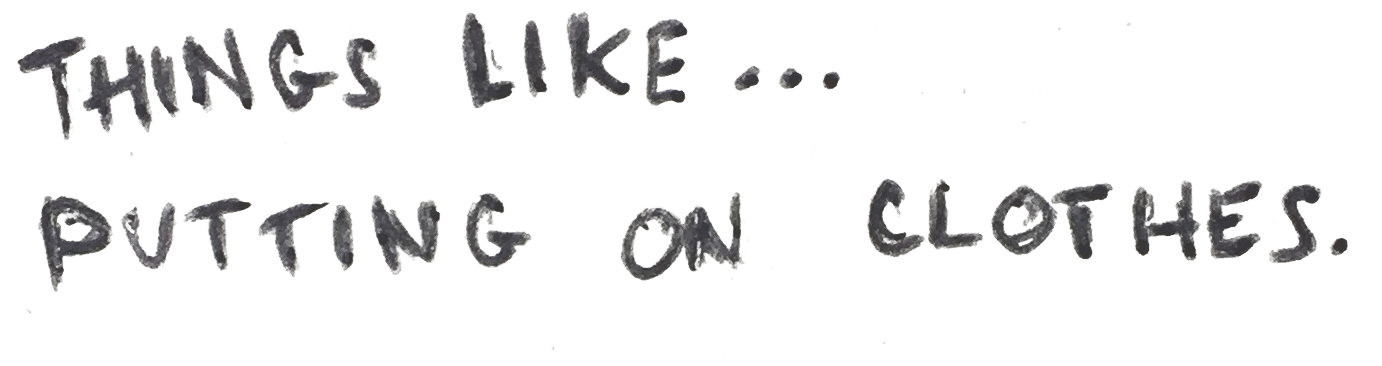 THINGS LIKE...
PUTTING ON CLOTHES.